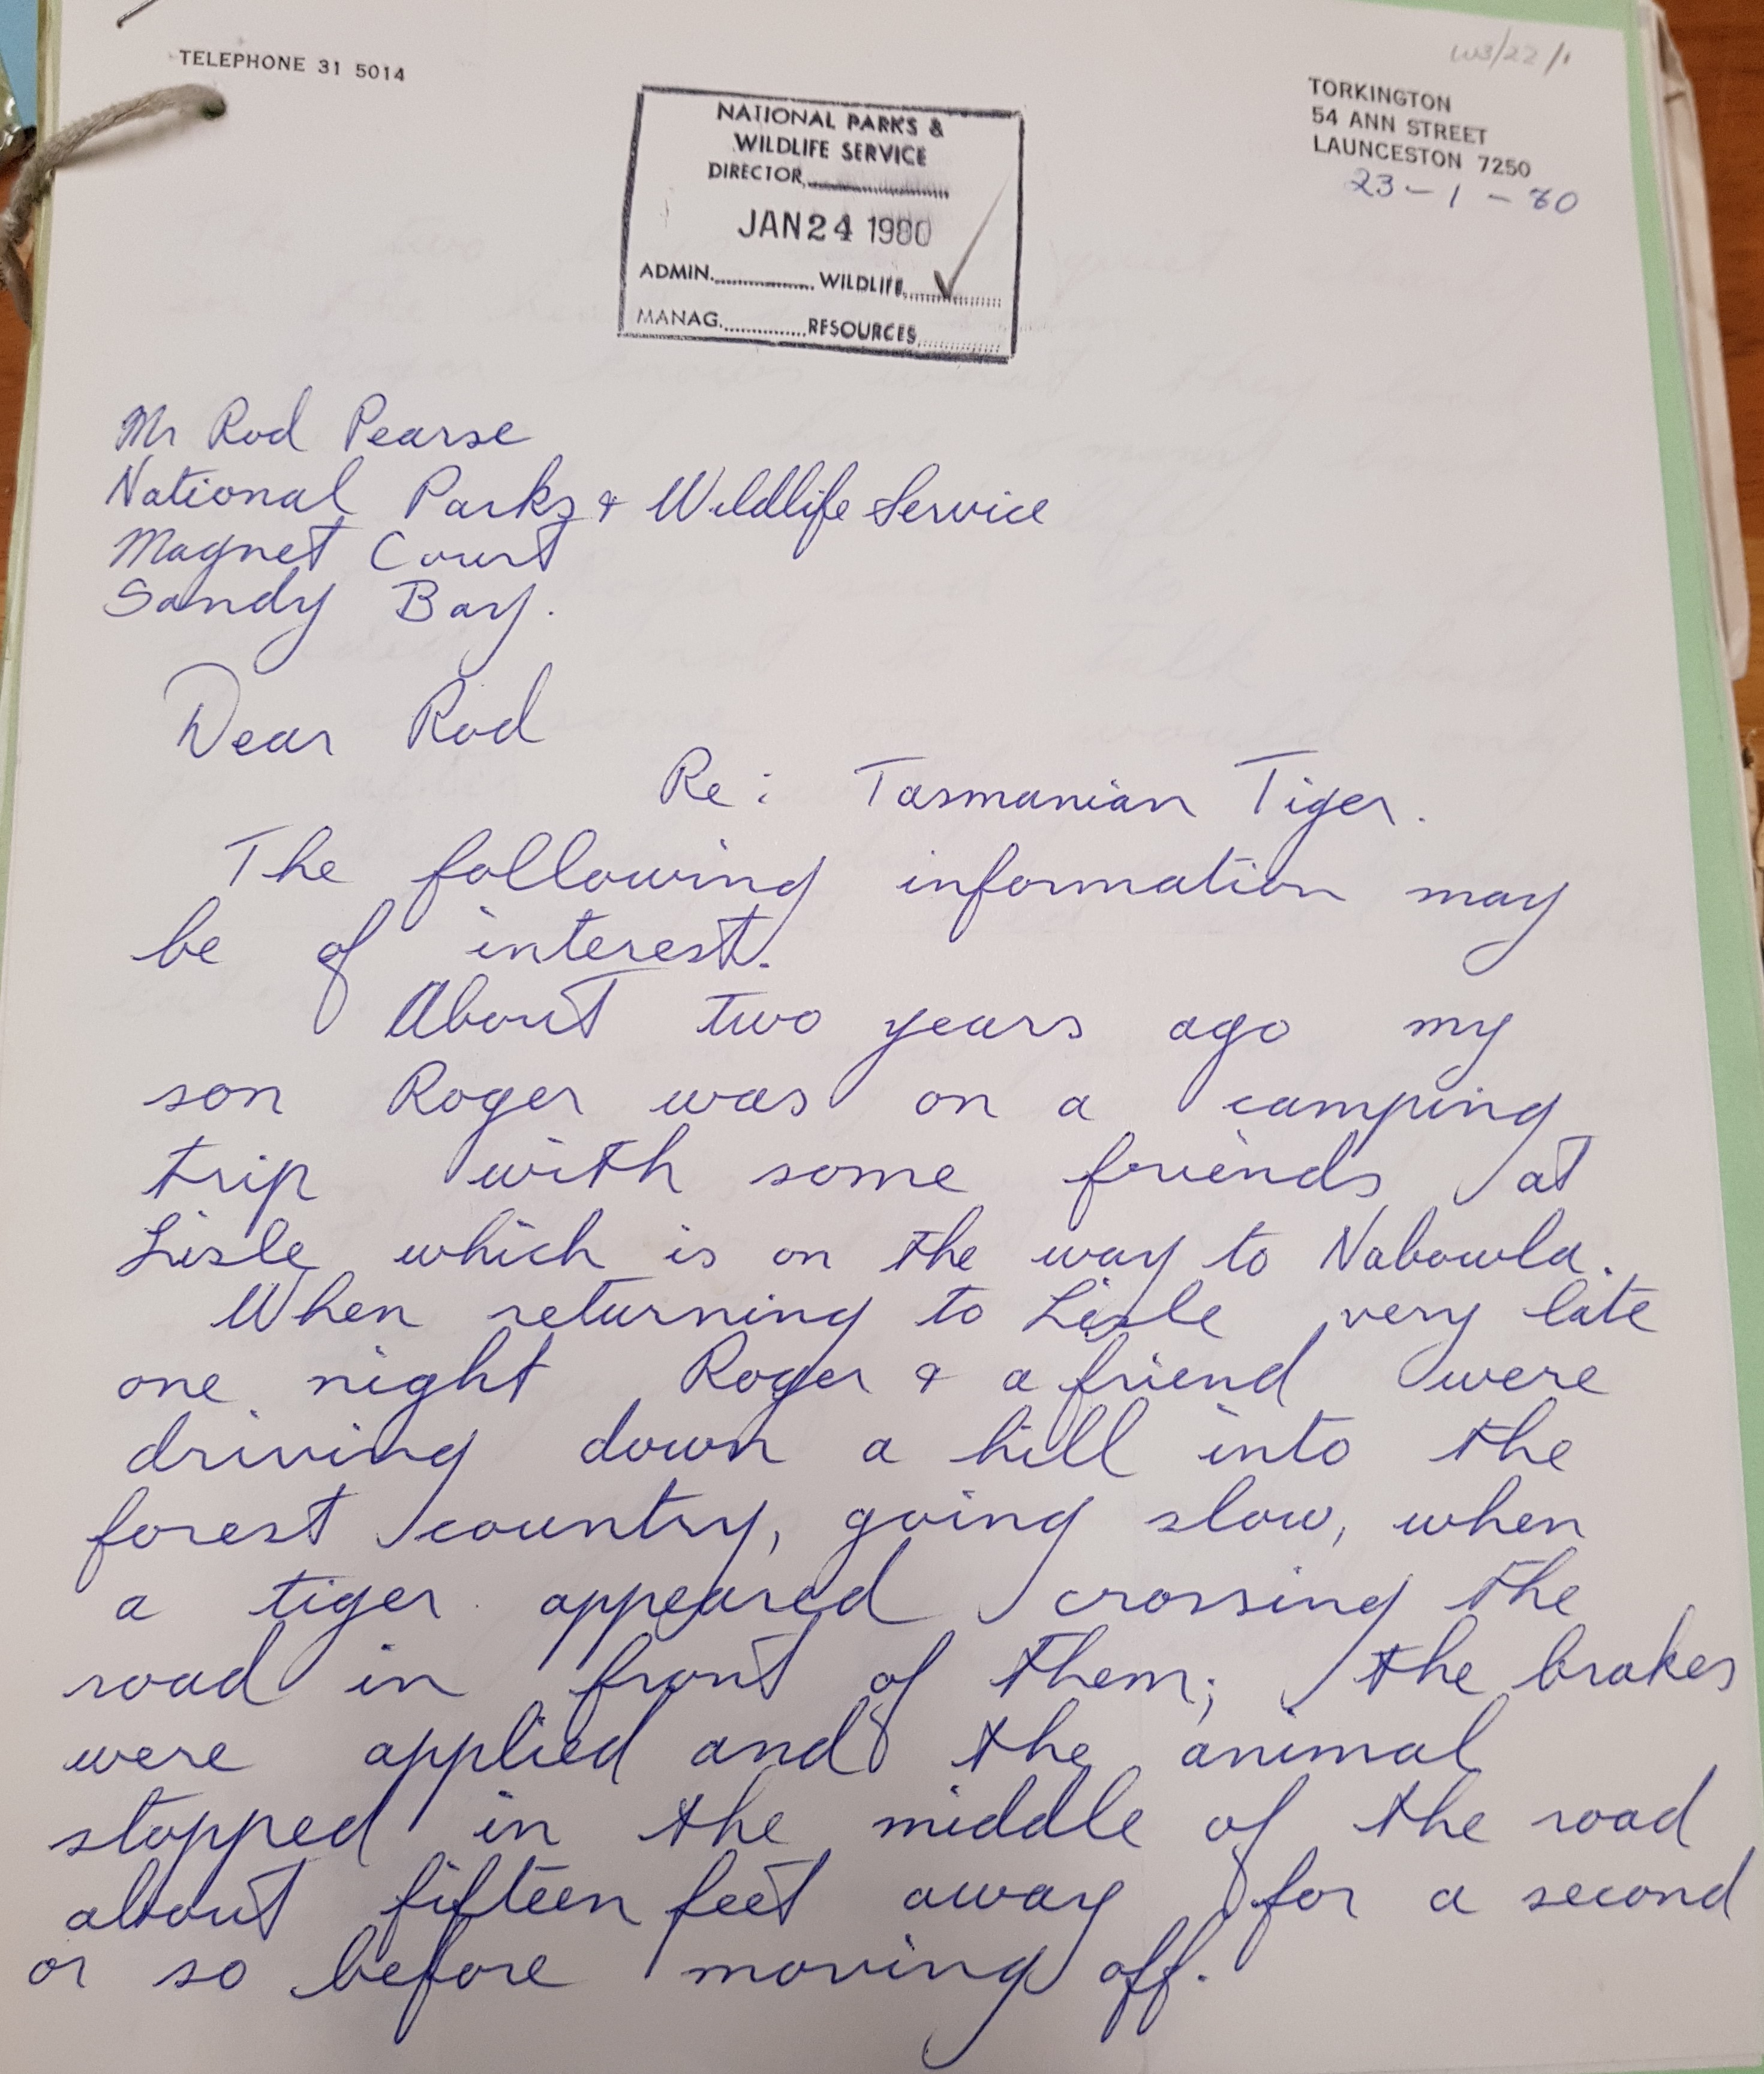 W3/22/1
TELEPHONE 31 5014
TORKINGTON
54 ANN STREET
LAUNCESTON 7250
23-1-80
NATIONAL PARKS &
WILDLIFE SERVICE
DIRECTOR
JAN 24 1980
ADMIN. WILDLIFE
MANAG. RESOURCES
Mr Rod Pearse
National Parks & Wildlife Service
Magnet Court
Sandy Bay.
Dear Rod
Re: Tasmanian Tiger.
The following information may
be of interest.
About two years ago my
son Roger was on a camping
trip with some friends at
Lisle which is on the way to Nabowla.
When returning to Lisle very late
one night Roger & a friend were
driving down a hill into the
forest country, going slow, when
a tiger appeared crossing the
road in front of them; the brakes
were applied and the animal
stopped in the middle of the road
about fifteen feet away for a second
or so before moving off.